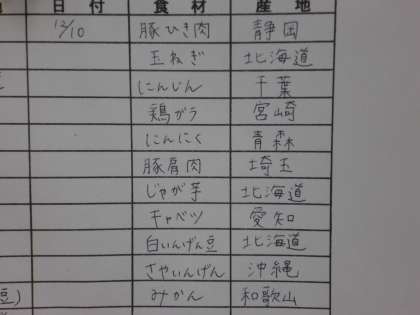 日付 食材 産地
12/10 豚ひき肉 静岡
玉ねぎ 北海道
にんじん 千葉
鶏ガラ 宮崎
にんにく 青森
豚肩肉 埼玉
じゃが芋 北海道
キャベツ 愛知
白いんげん豆 北海道
さやいんげん 沖縄
豆) みかん 和歌山